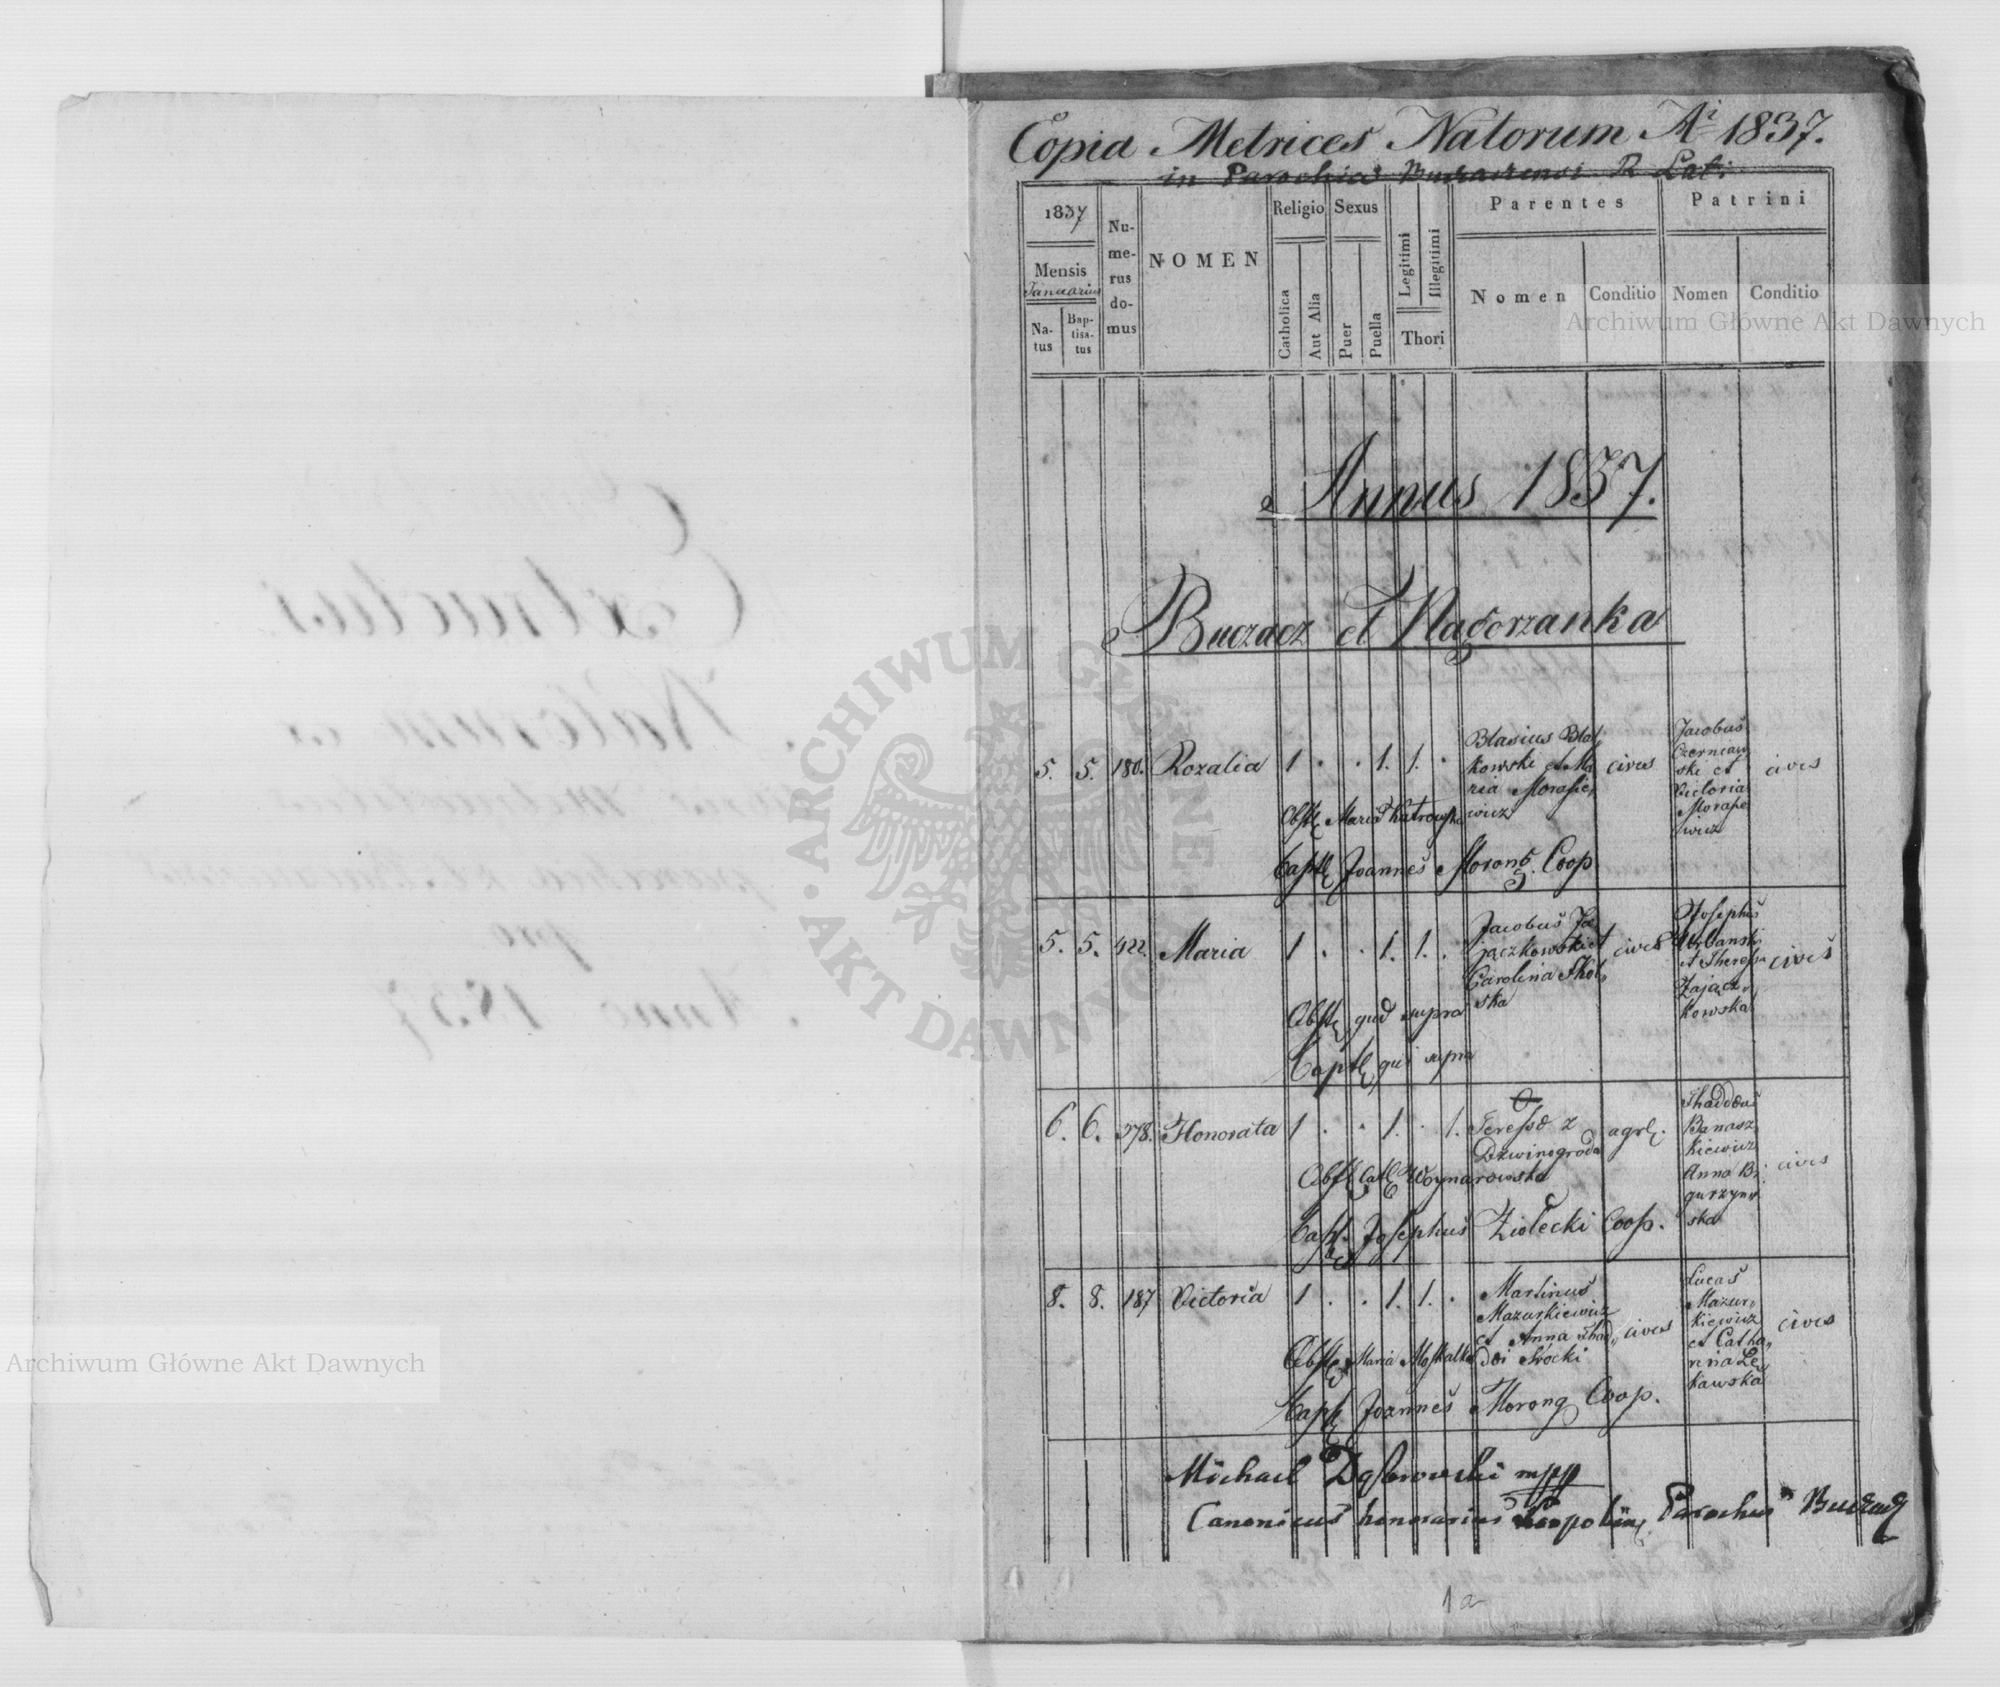 Copia Metrices Natorum Ai 1837.
in Parochia Buczaczensi R. Lat:
1837
Mensis
Januarius
Na-
tus
Bap-
tisa-
tus
Nu-
me-
rus
do-
mus
NOMEN
Religio
Catholica
Aut Alia
Sexus
Puer
Puella
Legitimi
Illegitimi
Thori
Parentes
Nomen
Conditio
Patrini
Nomen
Conditio
Archiwum Główne Akt Dawnych
Annus 1837.
Buczacz et Nagorzanka
5. 5. 180. Rozalia 1 . . 1. 1. .
Blasius
kowski et Ma
ria
wicz
cives
Jacobus
Czerniaw
ski et
Victoria
wicz
cives
Obstl Maria
Baptl Joannes Morong. Coop.
5. 5. 422. Maria 1 . . 1. 1. .
Jacobus Za
jączkowski et
Carolina
ska
cives
Josephus
Urbanski
et Theressa
Zającz
kowska
cives
Obstl quae supra
Baptl qui supra
6. 6. 378. Honorata 1 . . 1. . 1.
0
z
Dzwinogroda
agrl.
Thaddeus
Banasz
kiewicz
Anna
ska
cives
Obstl Woynarowska
Bapl. Josephus Ziołecki Coop.
8. 8. 187 Victoria 1 . . 1. 1. .
Martinus
Mazurkiewicz
et Anna Thad„
dei Srocki
cives
Lucas
Mazur„
kiewicz
et Catha„
rina Le
kawska
cives
Obstl Maria Moskalka
Bapl Joannes Morong Coop.
Michael Dąbrowski mpp
Canonicus honorarius Leopolien, Parochus Buczacz
1a
ARCHIWUM GŁÓWNE AKT DAWNYCH
Extractus
Natorum ex
pro
Anno 1837.
Archiwum Główne Akt Dawnych